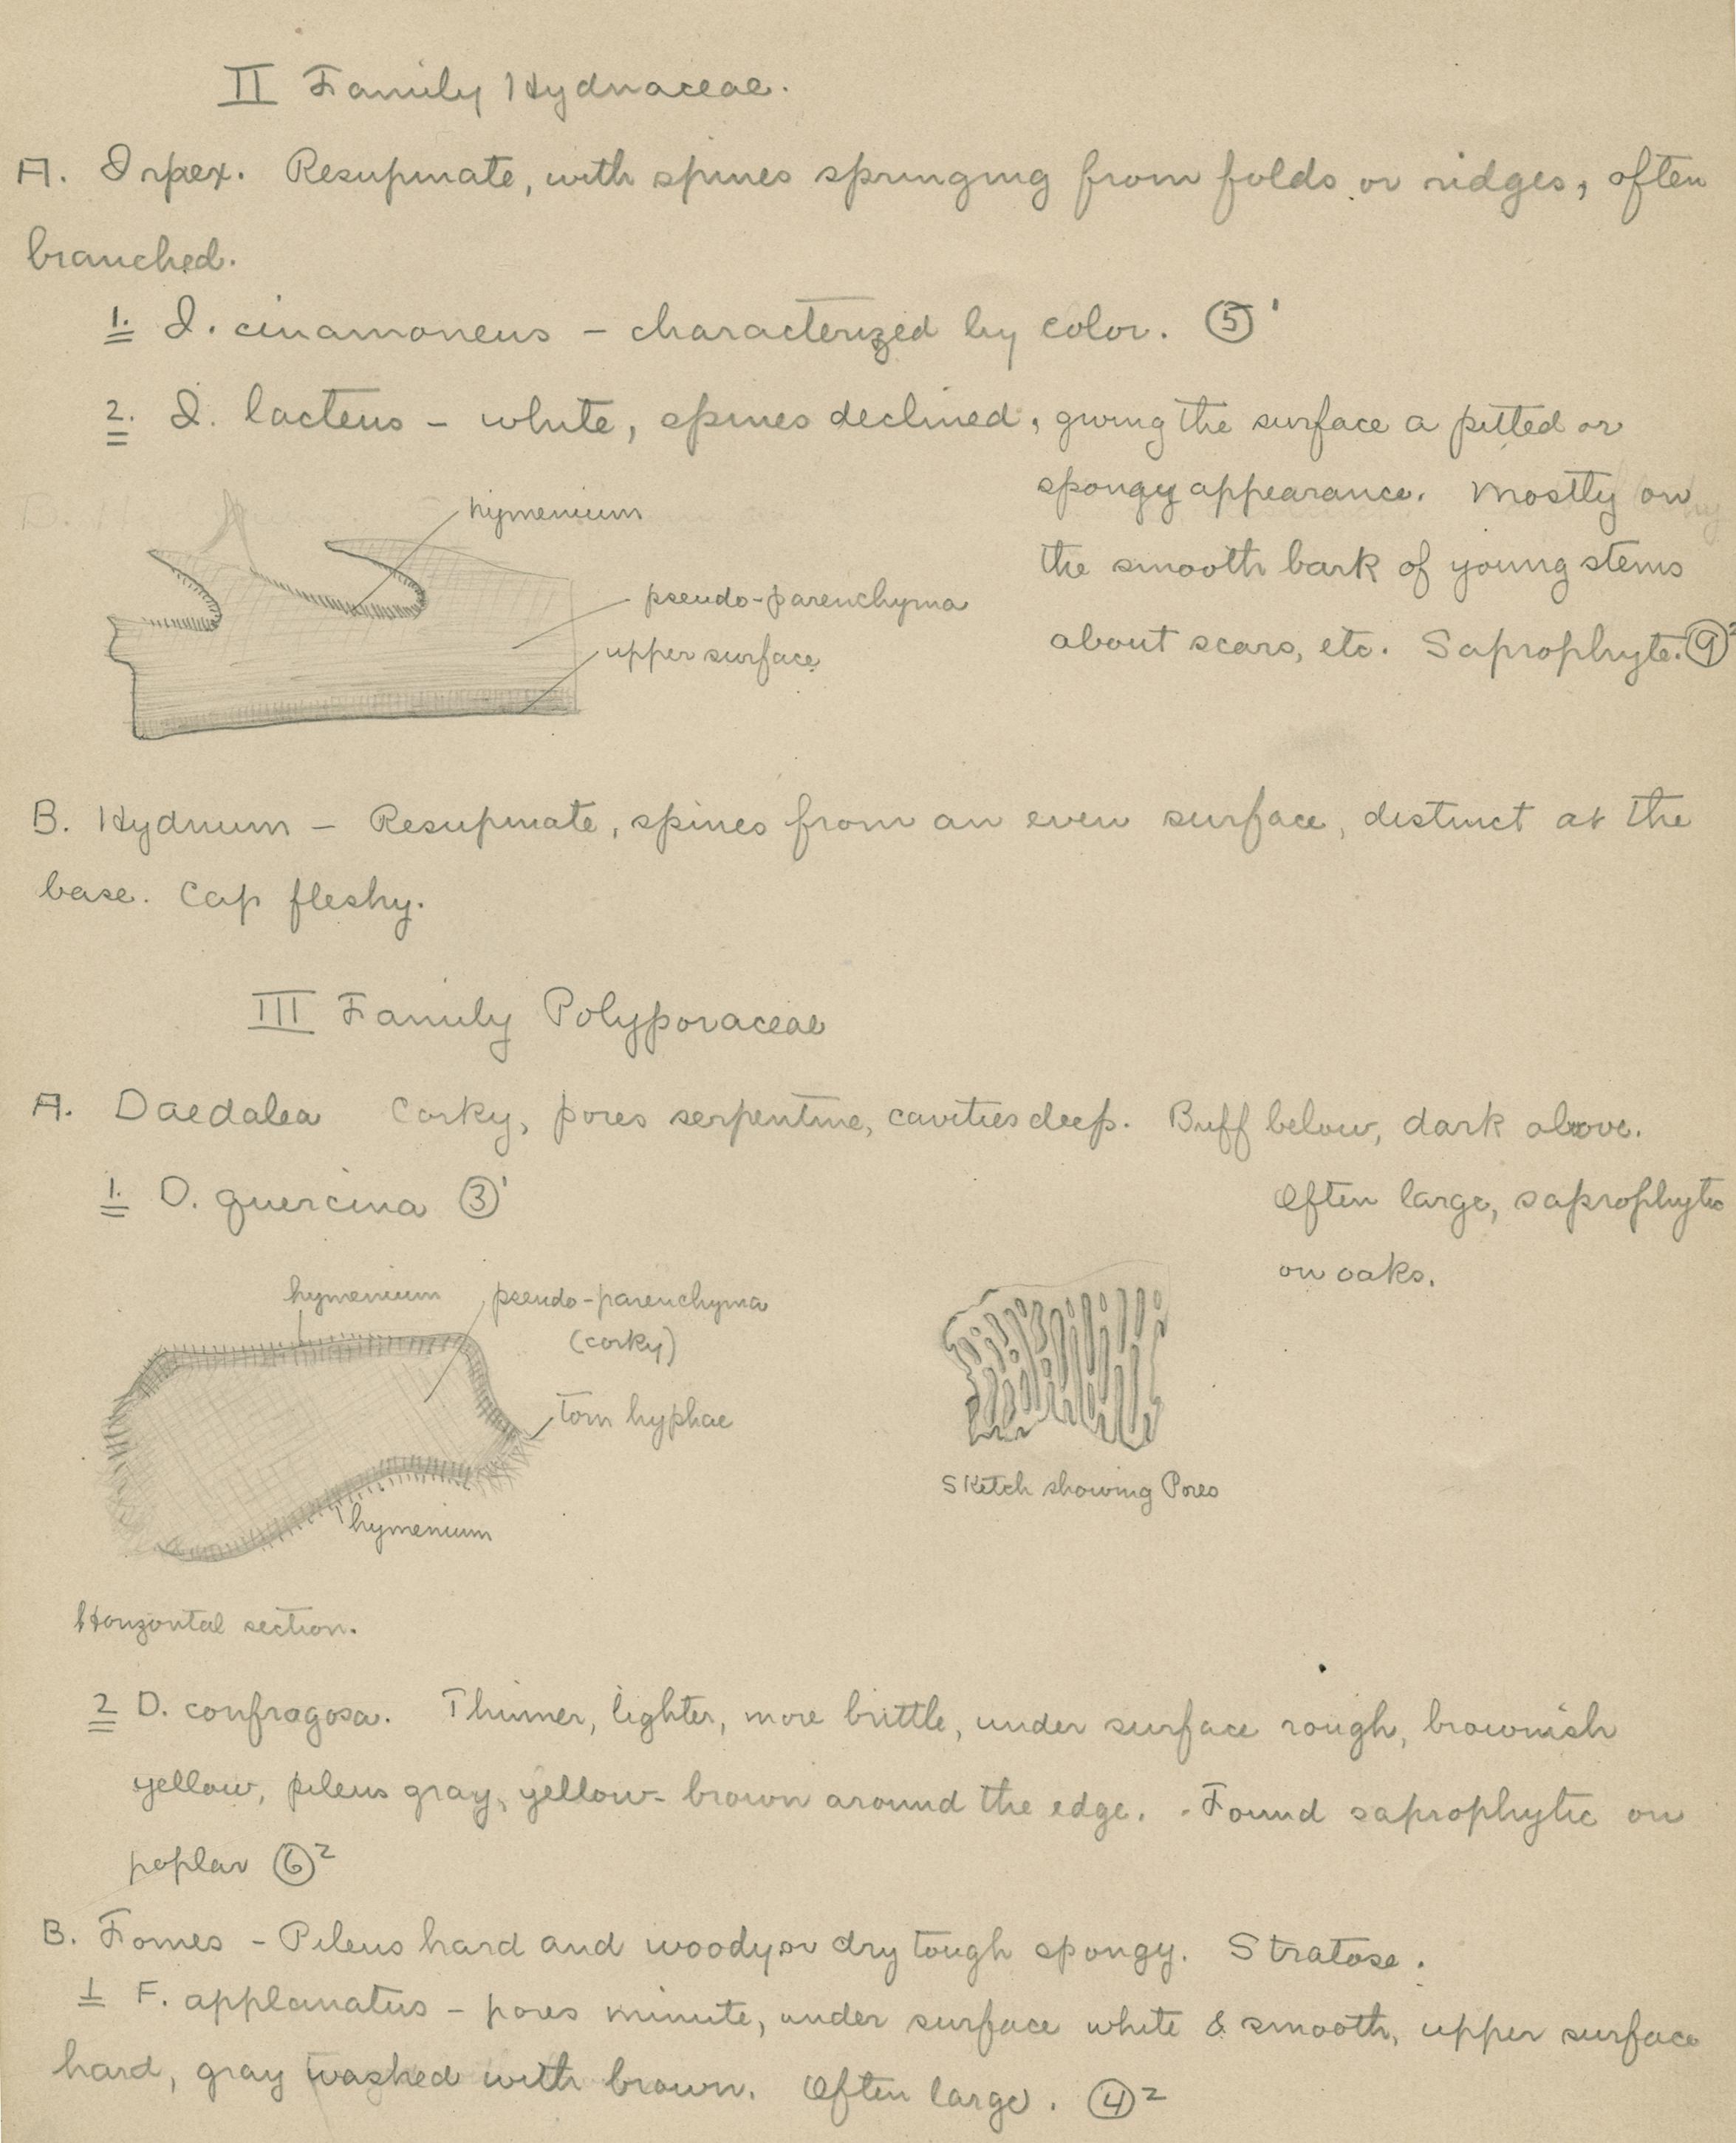 II Family Hydnaceae.
A. Irpex. Resupinate, with spines springing from folds or ridges, often
branched.
1. I. cinamoneus – characterized by color. ⑤¹
2. I. lacteus – white, spines declined, giving the surface a pitted or
spongy appearance. Mostly on
the smooth bark of young stems
about scars, etc. Saprophyte. ⑨²
hymenium
pseudo-parenchyma
upper surface
B. Hydnum – Resupinate, spines from an even surface, distinct at the
base. Cap fleshy.
III Family Polyporaceae
A. Daedalea Corky, pores serpentine, cavities deep. Buff below, dark above.
Often large, saprophytic
on oaks.
1. D. quercina ③¹
hymenium
pseudo-parenchyma
(corky)
torn hyphae
hymenium
Sketch showing Pores
Horizontal section.
2 D. confragosa. Thinner, lighter, more brittle, under surface rough, brownish
yellow, pileus gray, yellow-brown around the edge. Found saprophytic on
poplar ⑥²
B. Fomes – Pileus hard and woody or dry tough spongy. Stratose.
1 F. applanatus – pores minute, under surface white & smooth, upper surface
hard, gray washed with brown. Often large. ④²